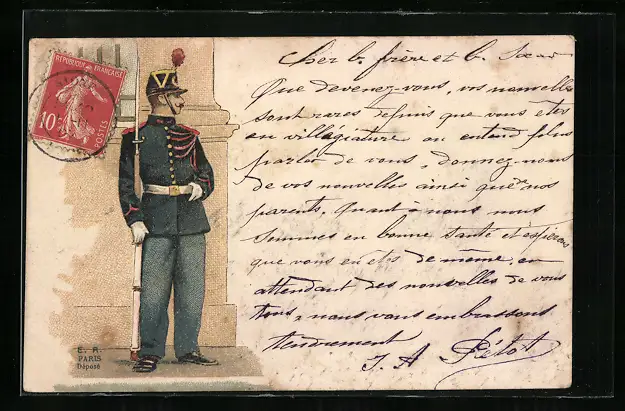 Cher b. frère et b. Sœur
Que devenez-vous, vos nouvelles
sont rares depuis que vous etes
en villégiature on entend plus
parler de vous, donnez-nous
de vos nouvelles ainsi que nos
parents, quant à nous nous
sommes en bonne santé et espérons
que vous en etes de même, en
attendant des nouvelles de vous
tous, nous vous embrassons
tendrement
J. A Pétot
REPUBLIQUE FRANÇAISE
10c
POSTES
E. R.
PARIS
Déposé